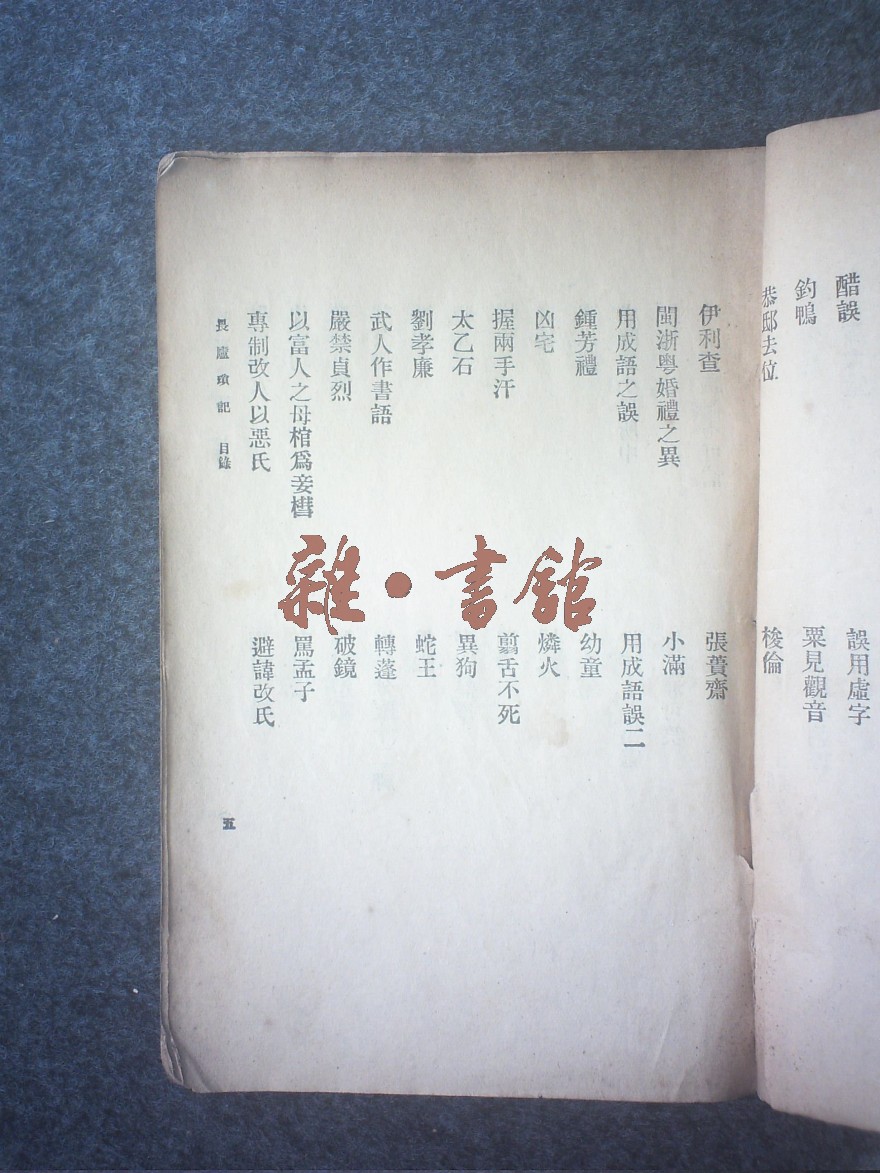 醋誤
誤用虛字
釣鴨
粟見觀音
恭邸去位
梭倫
伊利查
張蕢齋
閩浙粵婚禮之異
小滿
用成語之誤
用成語誤二
鍾芳禮
幼童
凶宅
燐火
握兩手汗
翦舌不死
太乙石
異狗
劉孝廉
蛇王
武人作書語
轉蓬
嚴禁貞烈
破鏡
以富人之母棺爲妾槥
罵孟子
專制改人以惡氏
避諱改氏
畏廬瑣記 目錄
五
雜·書館